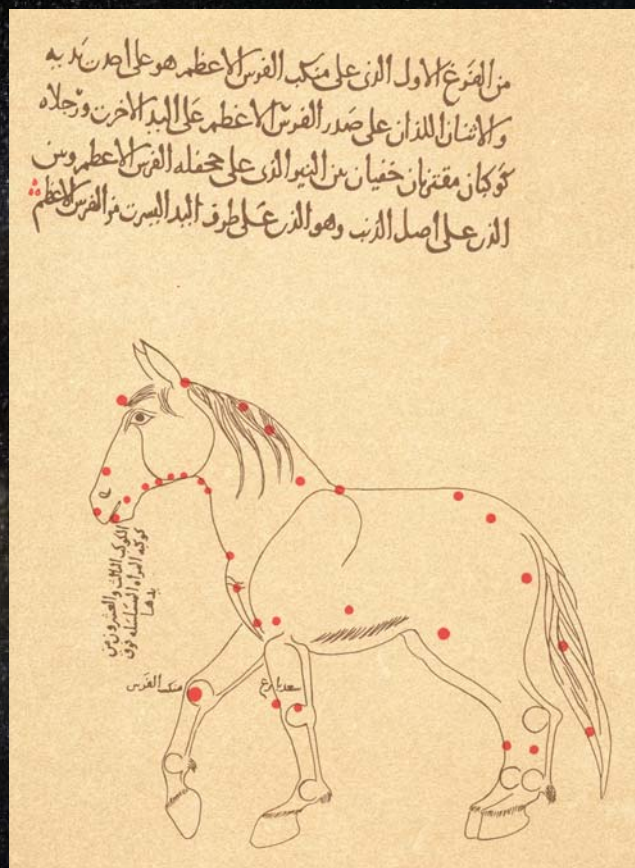 من الفرغ الاول الذى على منكب الفرس الاعظم هو على احدى يديه
والاثنان اللذان على صدر الفرس الاعظم على اليد الاخرى ورجلاه
كوكبان مقترنان خفيان بين النير الذى على جحفله الفرس الاعظم وبين
الذى على اصل الذنب وهو الذى على طرف اليد اليسرى من الفرس الاعظم
الكوكب الثالث والعشرون من
كوكبه المراه المسلسله فوق
يدها
منكب الفرس
سعد بارع